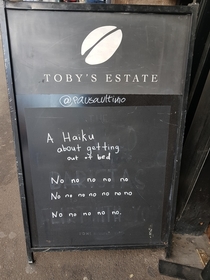 TOBY'S ESTATE
@pausaultimo
A Haiku
about getting
out of bed
No no no no no
No no no no no no no
No no no no no.